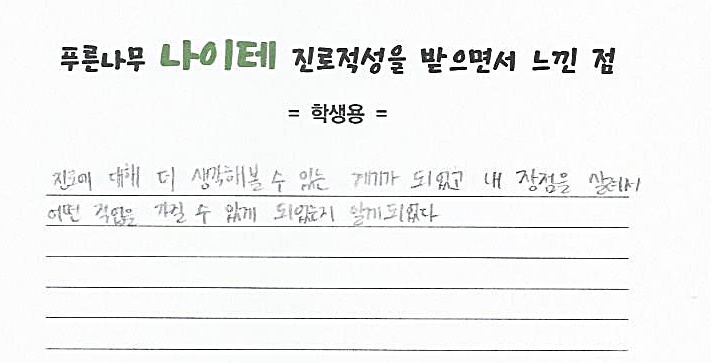 푸른나무 나이테 진로적성을 받으면서 느낀 점
= 학생용 =
진로에 대해 더 생각해볼 수 있는 계기가 되었고 내 장점을 살려서
어떤 직업을 가질 수 있게 되었는지 알게되었다